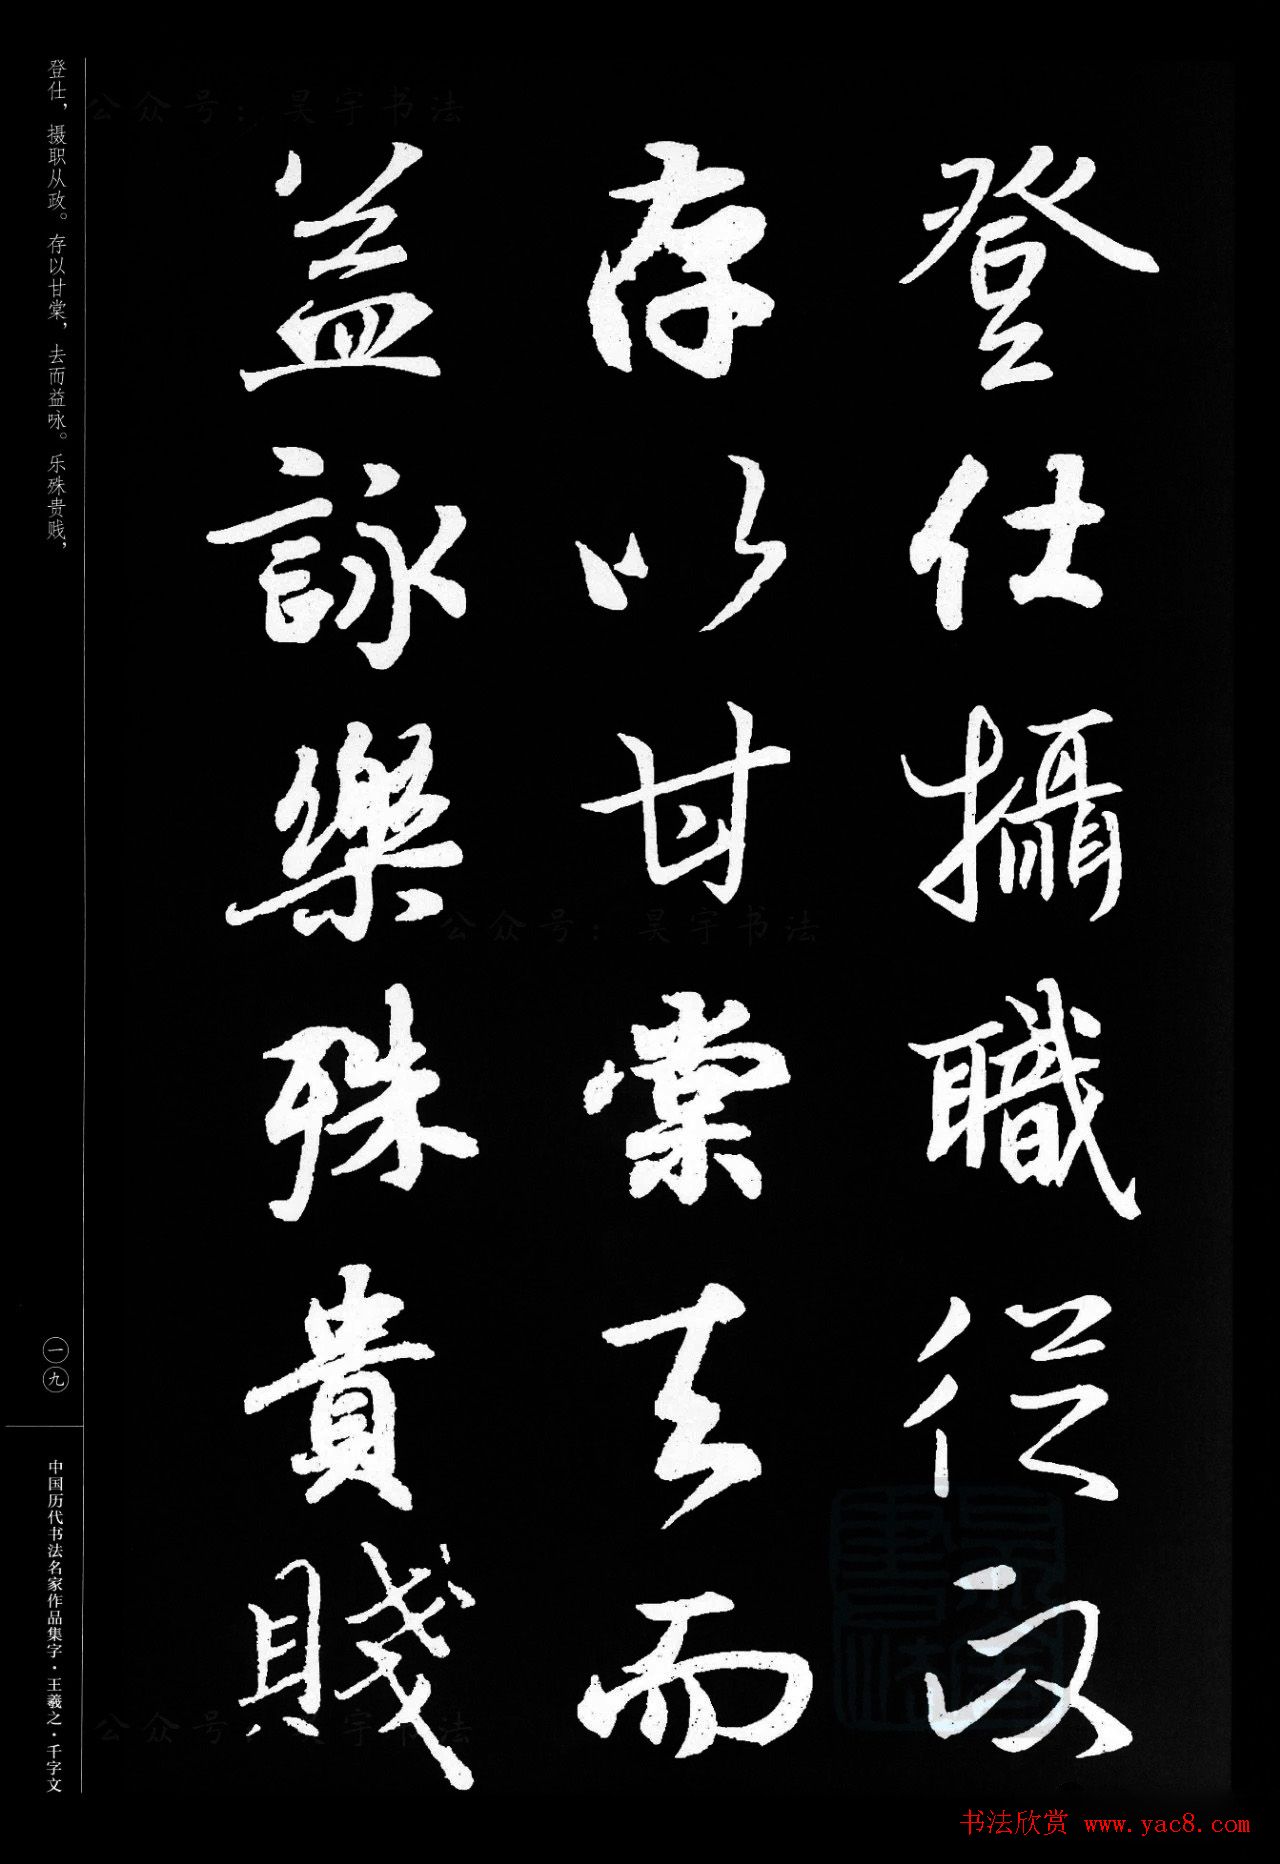 登仕攝職從政
存以甘棠去而
益詠樂殊貴賤
登仕，摄职从政。存以甘棠，去而益咏。乐殊贵贱，
一九
中国历代书法名家作品集字·王羲之·千字文
公众号：昊宇书法
公众号：昊宇书法
公众号：昊宇书法
昊宇书法
书法欣赏 www.yac8.com